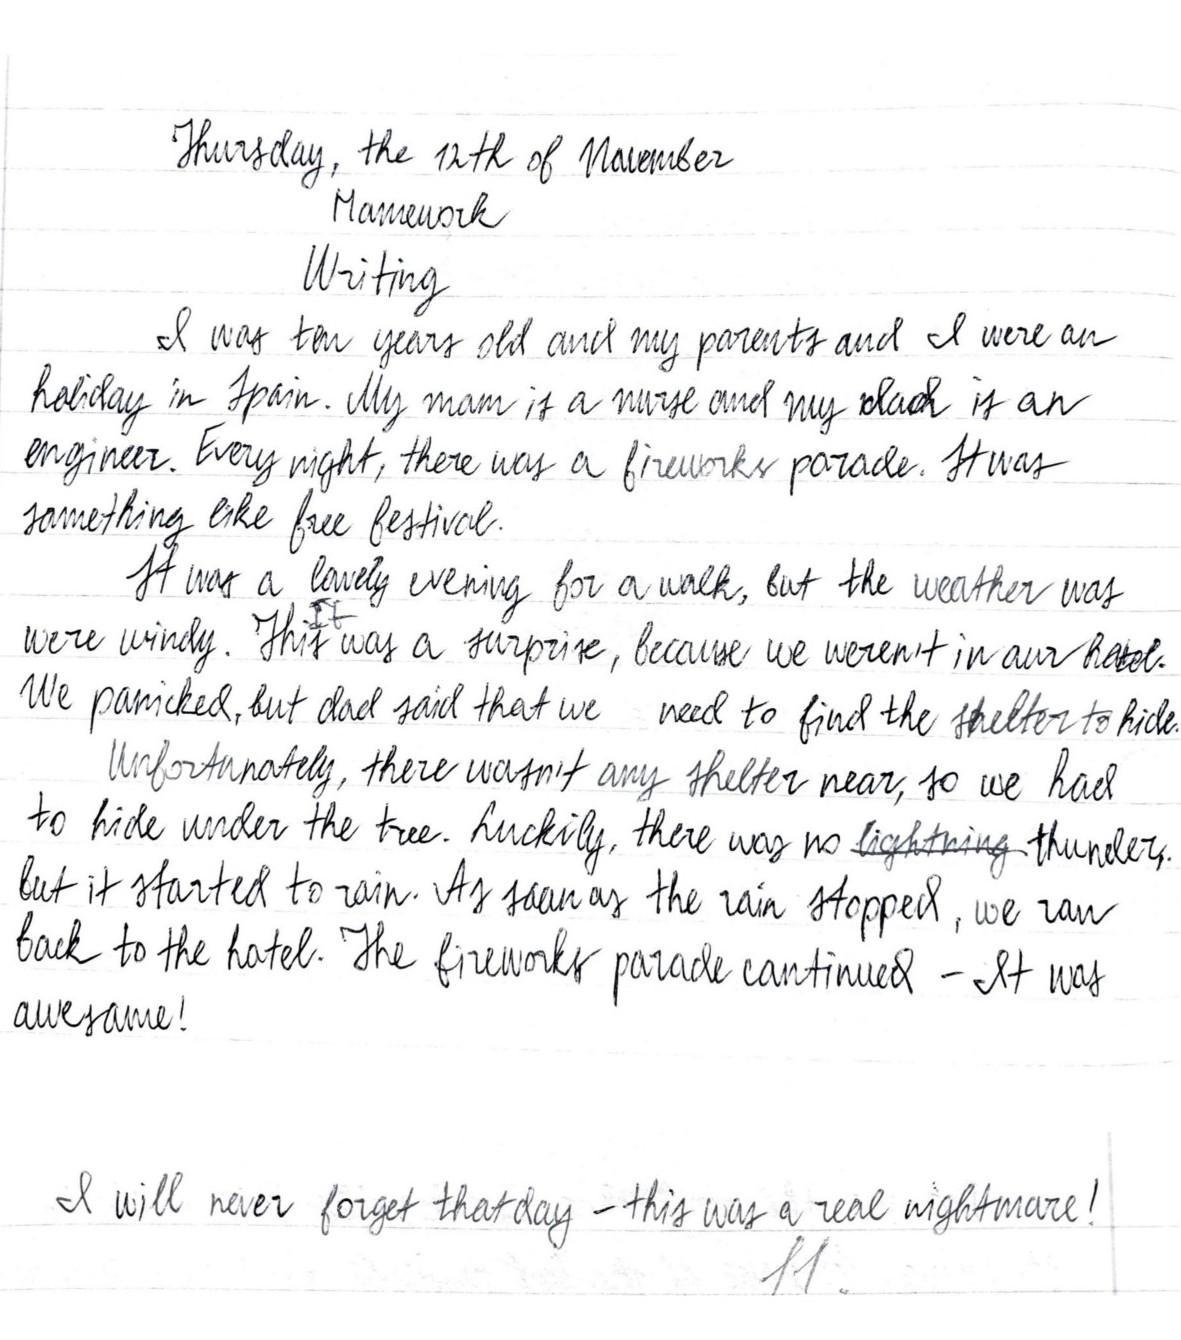 Thursday, the 12th of November
Homework
Writing
I was ten years old and my parents and I were on
holiday in Spain. My mom is a nurse and my dad is an
engineer. Every night, there was a fireworks parade. It was
something like free festival.
It was a lovely evening for a walk, but the weather was
were windy. This It was a surprise, because we weren't in our hotel.
We panicked, but dad said that we need to find the shelter to hide.
Unfortunately, there wasn't any shelter near, so we had
to hide under the tree. Luckily, there was no lightning thunder,
but it started to rain. As soon as the rain stopped, we ran
back to the hotel. The fireworks parade continued – It was
awesome!
I will never forget that day – this was a real nightmare!